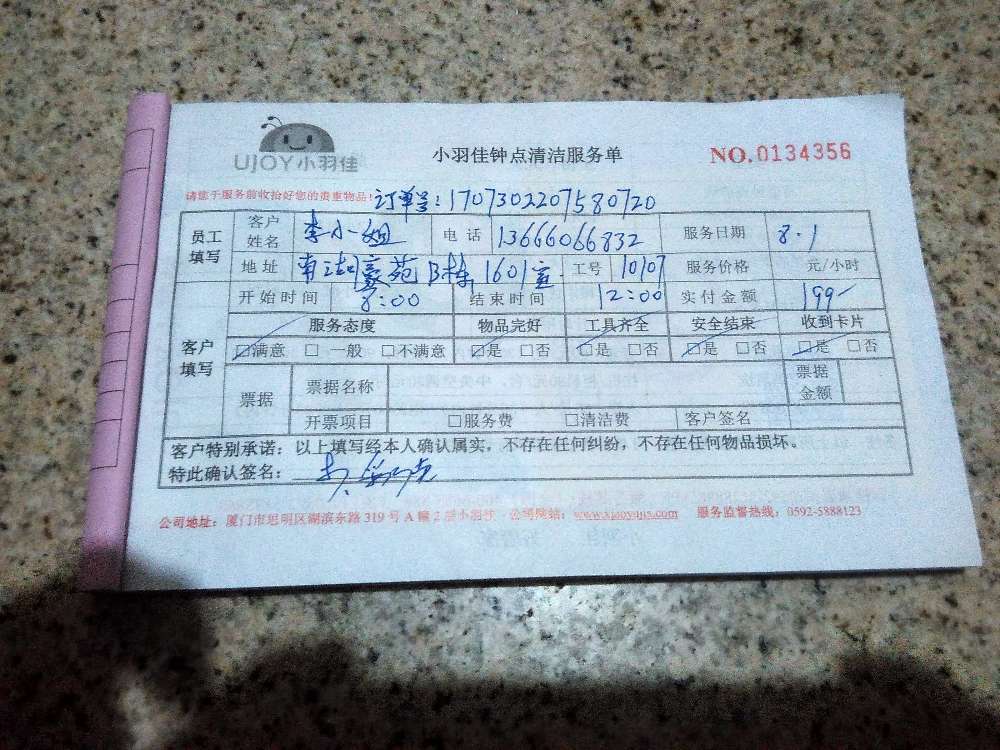 UJOY小羽佳
小羽佳钟点清洁服务单
NO.0134356
请您于服务前收拾好您的贵重物品!
订单号:1707302207580720
员工填写 客户姓名 李小姐 电话 13666066832 服务日期 8.1
地址 南湖豪苑B栋1601室 工号 10107 服务价格 元/小时
开始时间 8:00 结束时间 12:00 实付金额 199-
客户填写 服务态度 物品完好 工具齐全 安全结束 收到卡片
☑满意 □一般 □不满意 ☑是 □否 ☑是 □否 ☑是 □否 ☑是 □否
票据 票据名称 票据金额
开票项目 □服务费 □清洁费 客户签名
客户特别承诺:以上填写经本人确认属实,不存在任何纠纷,不存在任何物品损坏。
特此确认签名:
公司地址:厦门市思明区湖滨东路319号A幢2层小羽佳 公司网站: 服务监督热线:0592-5888123